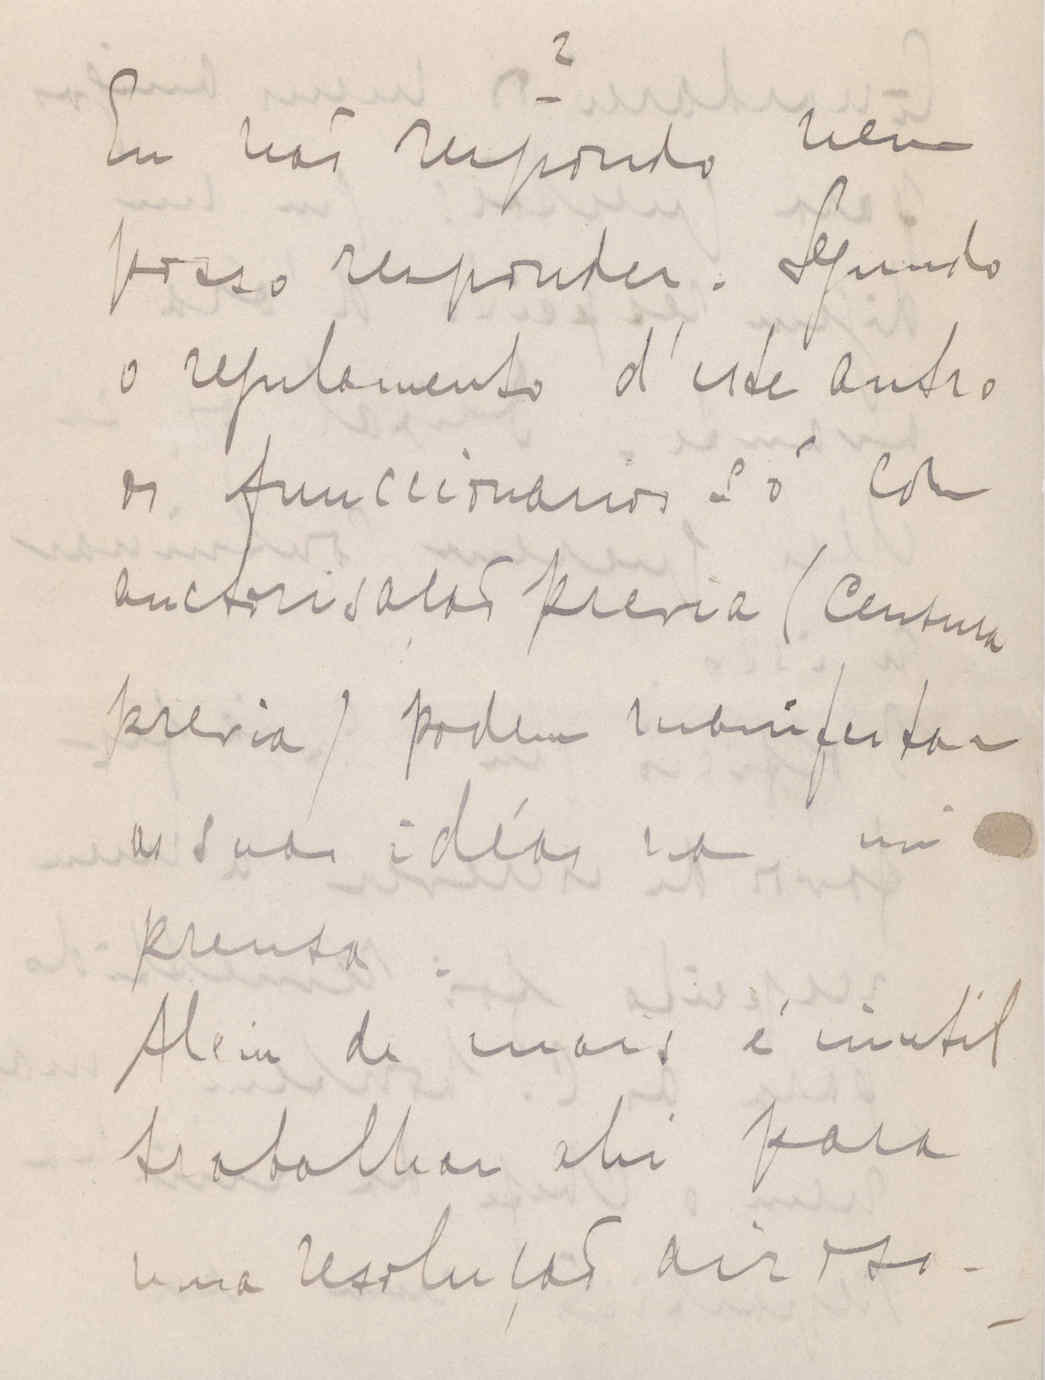 2
Eu não respondo nem
posso responder. Segundo
o regulamento d'este antro
os funccionarios só com
auctorisação previa (Censura
previa) podem manifestar
as suas idéas na im
prensa.
Alem de mais é inutil
trabalhar ahi para
uma resolução airosa.